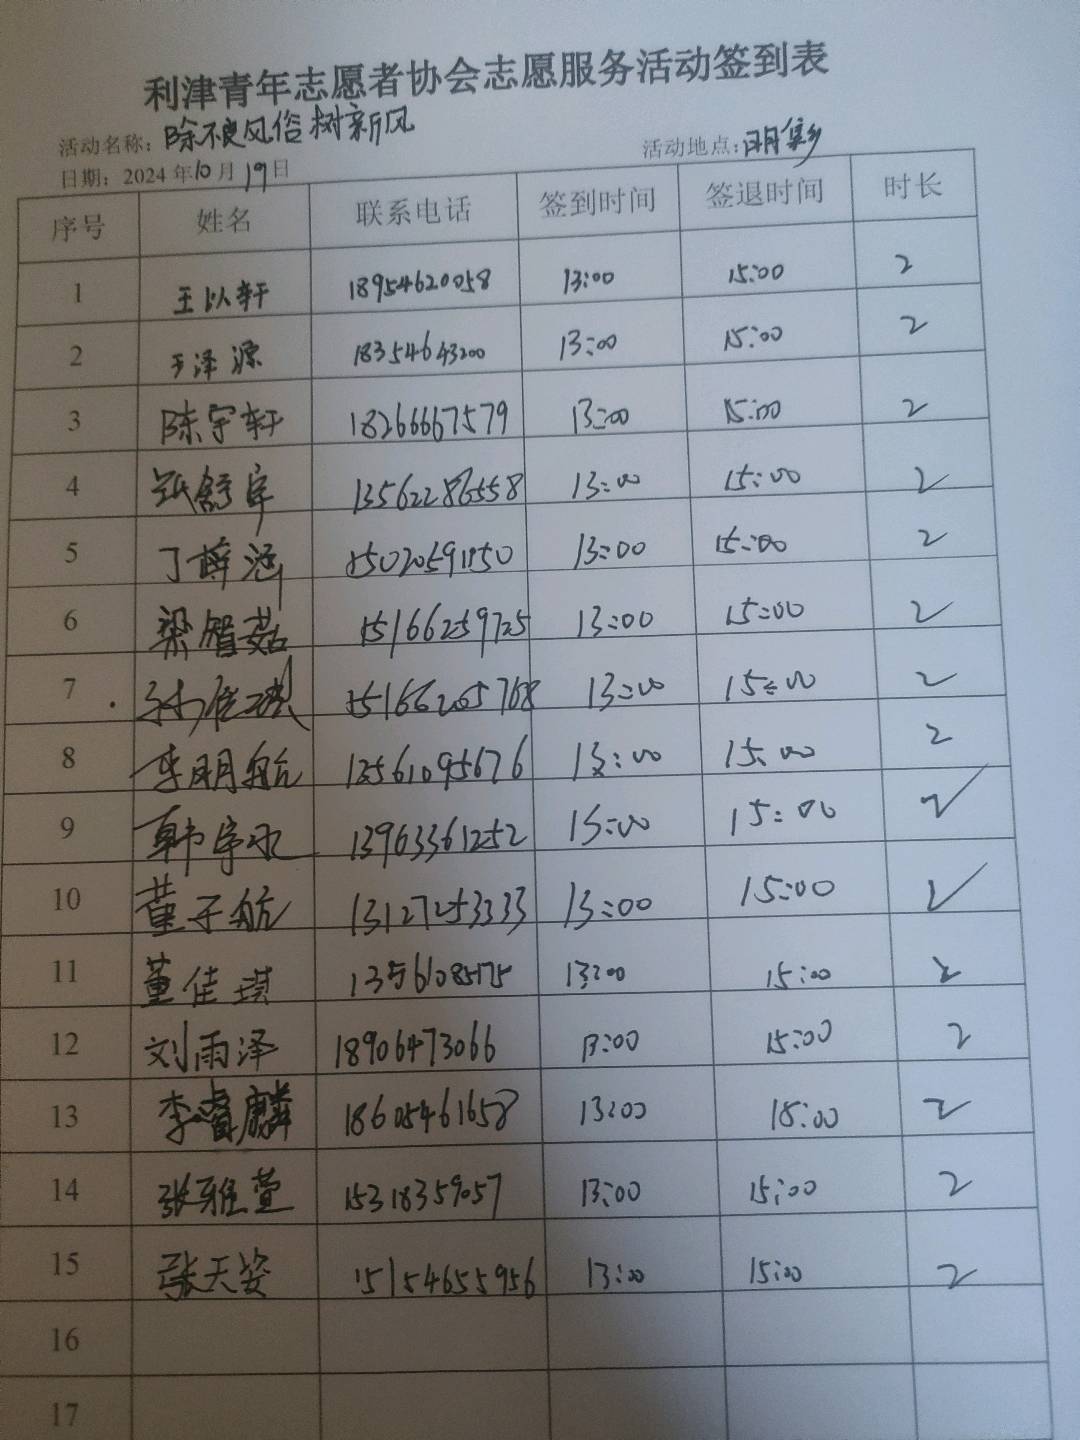 利津青年志愿者协会志愿服务活动签到表
活动名称：除不良风俗 树新风 活动地点：明集乡
日期：2024年10月19日
序号 姓名 联系电话 签到时间 签退时间 时长
1 王以轩 18954620058 13:00 15:00 2
2 于泽源 18354643200 13:00 15:00 2
3 陈宇轩 18266667579 13:00 15:00 2
4 13562286558 13:00 15:00 2
5 丁梓涵 15020591150 13:00 15:00 2
6 梁智茹 15166259725 13:00 15:00 2
7 15166205768 13:00 15:00 2
8 李明航 13561095676 13:00 15:00 2
9 13963361252 13:00 15:00 2
10 董子航 13127253333 13:00 15:00 2
11 董佳琪 13:00 15:00 2
12 刘雨泽 18906473066 13:00 15:00 2
13 李睿麟 18605461658 13:00 15:00 2
14 张雅萱 15318359057 13:00 15:00 2
15 张天姿 15154655956 13:00 15:00 2
16
17